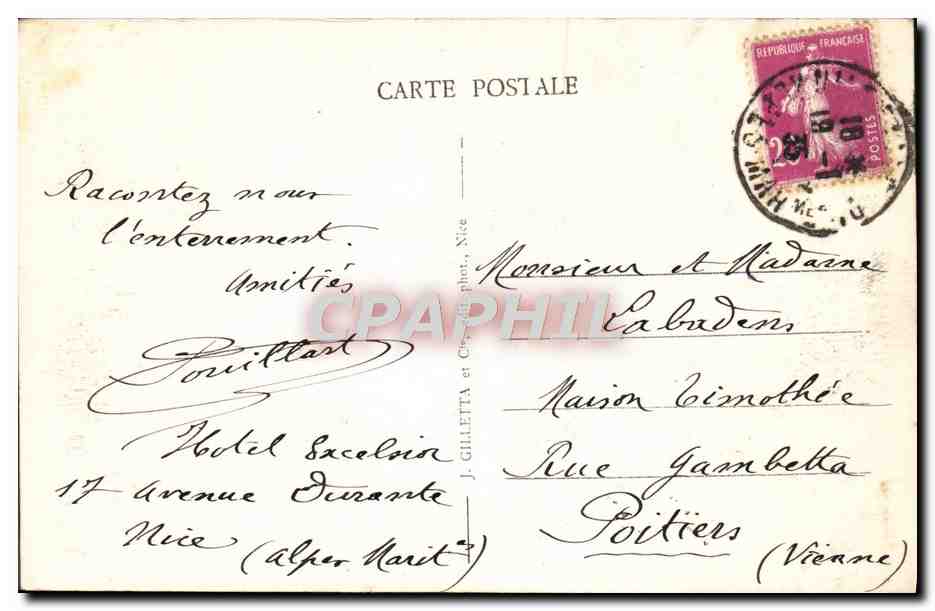 CARTE POSTALE
REPUBLIQUE FRANÇAISE
POSTES
Racontez nous
l'enterrement.
Amitiés
Pouillart
Hotel Excelsior
17 Avenue Durante
Nice (Alpes Marit es)
J. GILLETTA et Cie, édit. phot., Nice
Monsieur et Madame
Labadens
Maison Timothée
Rue Gambetta
Poitiers
(Vienne)
CPAPHIL